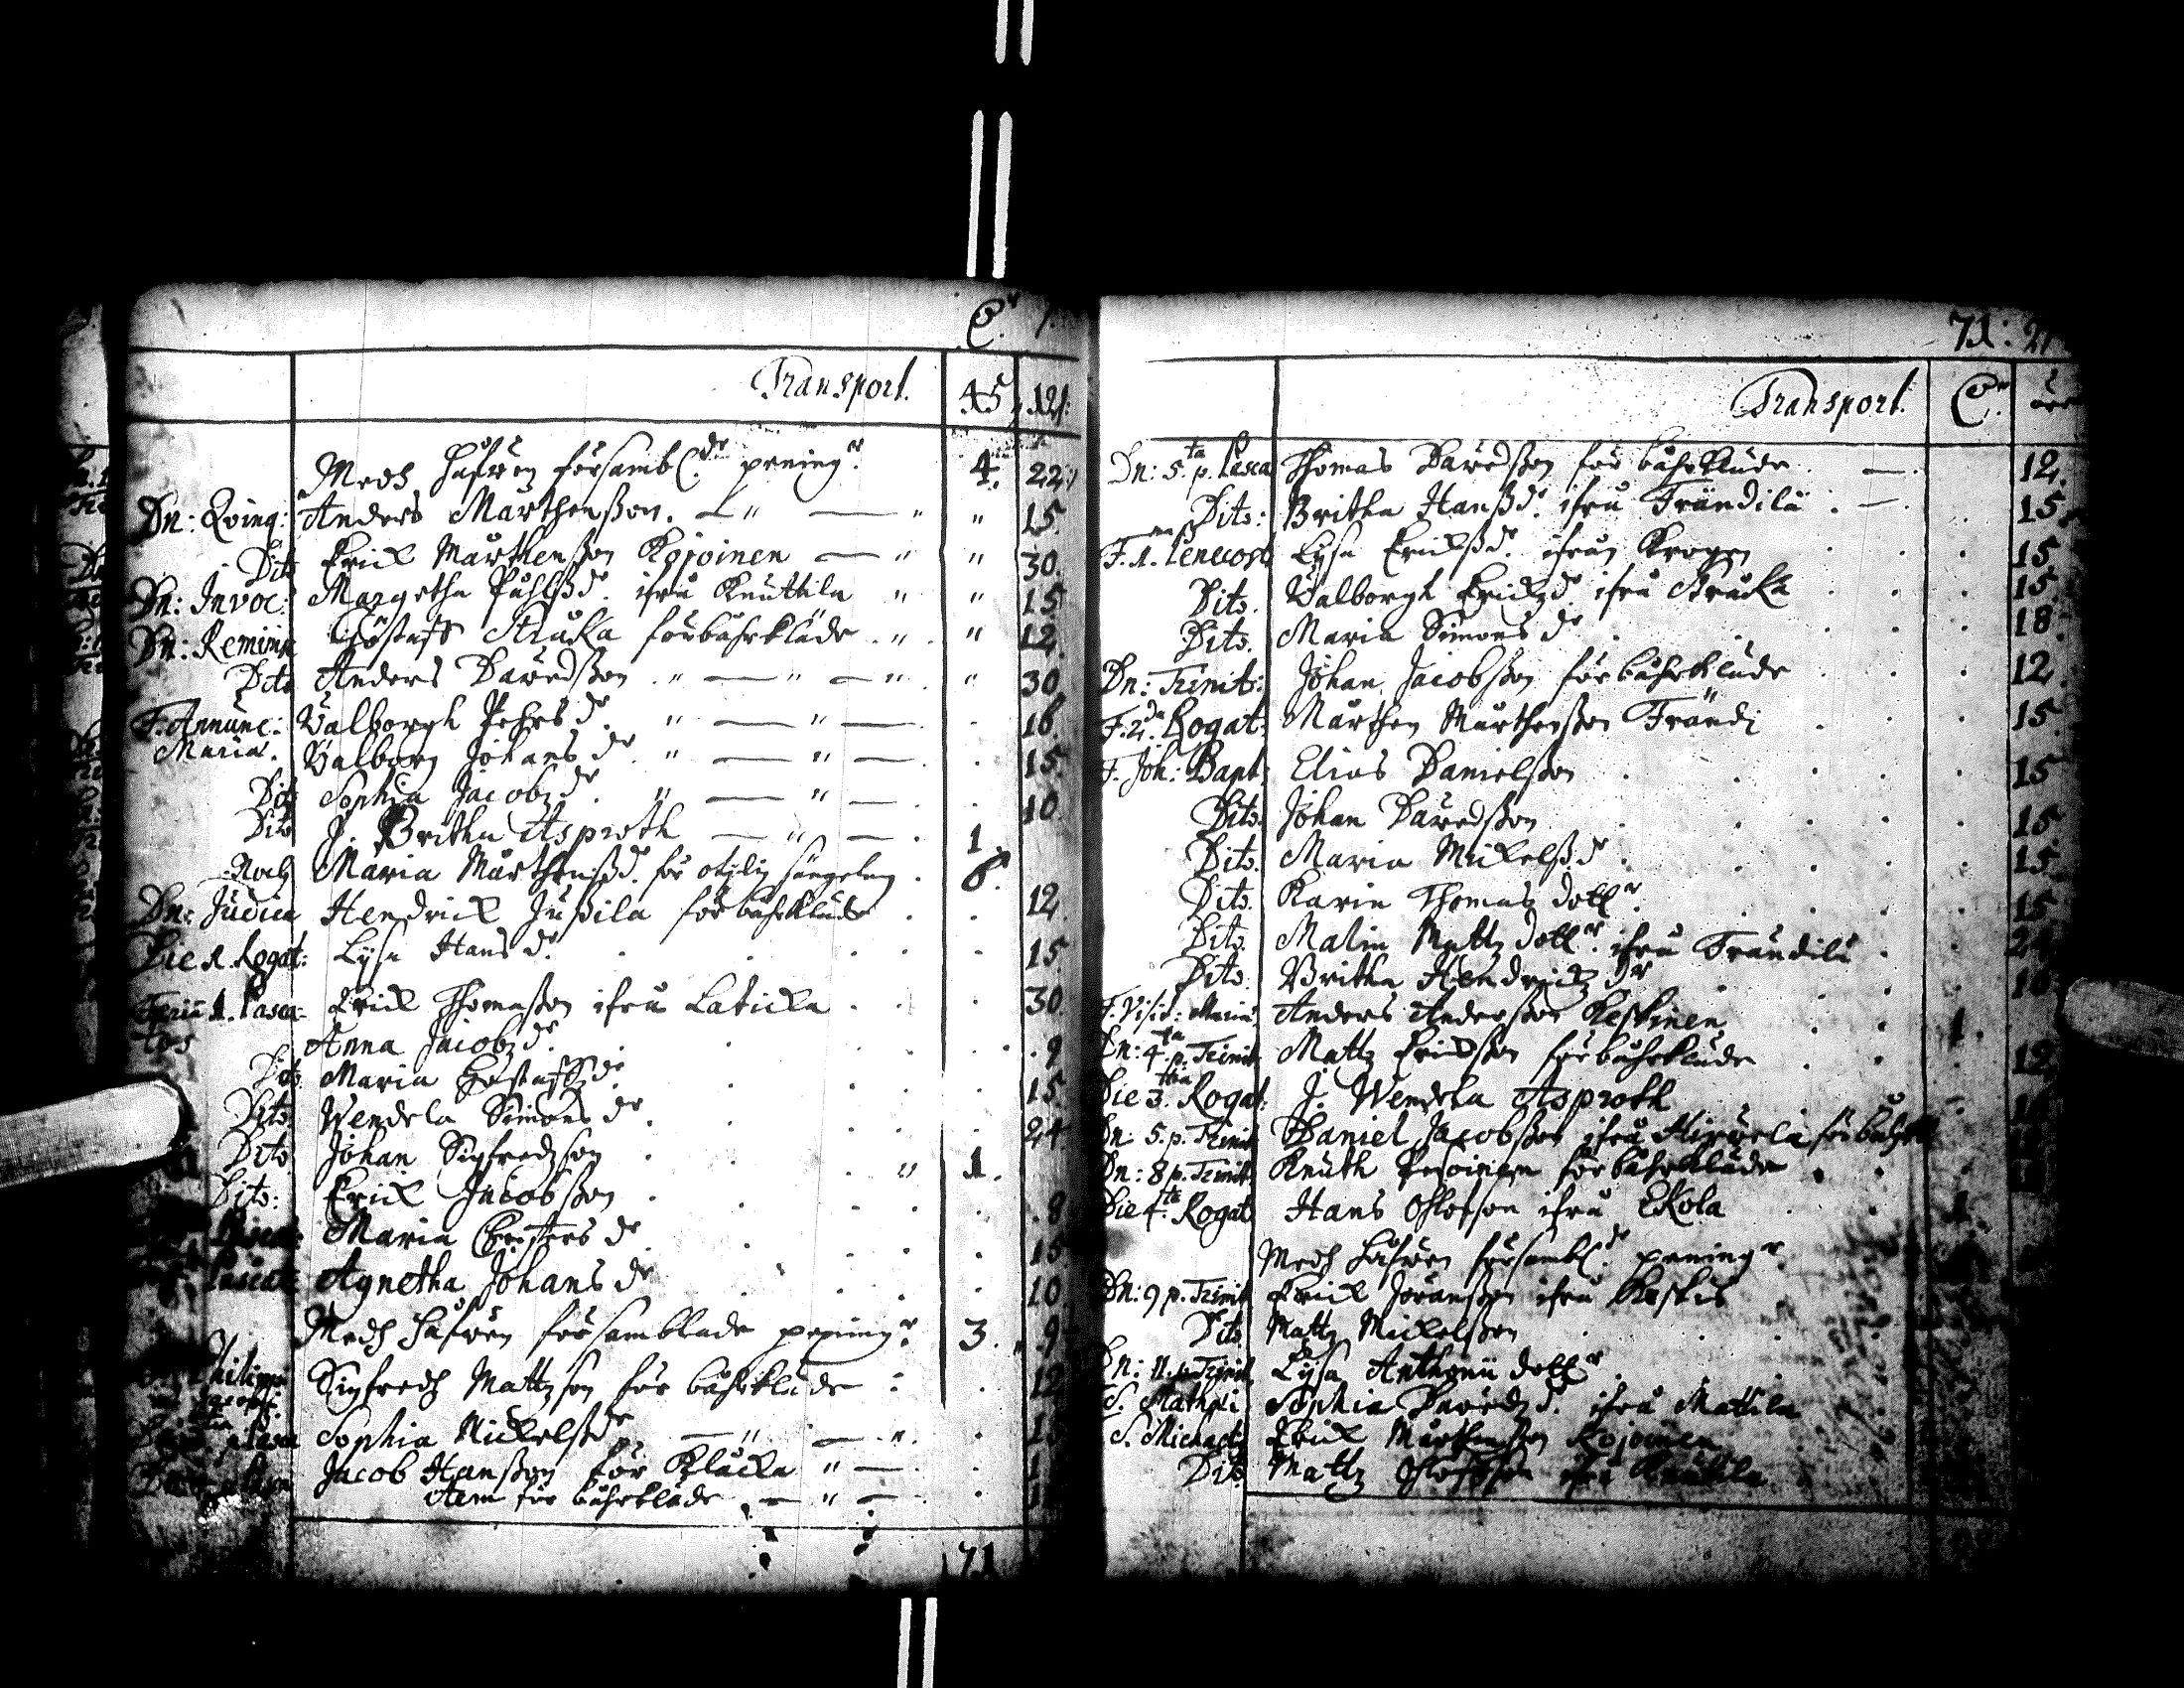 Cr
Transport. 45 121:
Medh Håfwen försambl:de pening:r 4. 22
Dn: Qvinq: Anders Mårthensson. " 15.
Dito Erick Mårthensson Kojoinen — " " 30.
Dn: Invoc: Margetha Påhlsd:r ifrå Knuttila " " 15
Dn: Remin Göstaff Strucka för båhrkläde . " . " 12.
Dito Anders Dawedsson . " — " — " . " 30
F. Annunc: Valborgh Pehrs d:r " — " — . 16.
Mariæ. Valborg Johans d:r " — " — . 15.
Dito Sophia Jacobz d:r " — " — . 10
Dito J. Britha Asproth — " — . 1.
Noch Maria Mårthensd:r för otijdig sängelag . 6.
Dn: Judica Hendrick Jussila för båhrkläde . . 12
Die 1. Rogat: Lijsa Hans d:r 15.
Feria 1. Pasca- Erick Thomasson ifrå Laticka . 30.
tos Anna Jacobz d:r 9
Dito. Maria Göstaffz d:r 15.
Dito Wendela Simons d:r 24
Dito Johan Sigfredzson . " 1.
Dito: Erick Jacobsson . 8
Maria Christers d:r 15
Pascat: Agnetha Johans d:r 10.
Medh Håfwen församblade pening:r 3. 9
Philippi Sigfredh Mattzson för båhrkläde : . 12
Sophia Mickelsd:r — " — " .
Jacob Hansson för Klåcka " — .
för båhrkläde . — " —
71
71: 21
Transport. Cr öre
Dn: 5.ta p. Pasca Thomas Dawedsson för båhrkläde . — . 12.
Dito: Britha Hanssd:r ifrå Frändilä . — . 15
F. 1.ma Pentecost Lijsa Erickssd:r ifrån Krogen 15
Dito. Valborgh Erickzd:r ifrå Strucka 15.
Dito. Maria Simons d:r 18
Dn: Trinit: Johan Jacobsson för båhrkläde 12.
F. 2.da Rogat: Mårthen Mårthensson Frändi 15
F. Joh: Bapt: Elias Danielsson 15
Dito. Johan Dawedsson 15
Dito. Maria Mickelssd:r 15
Dito. Karin Thomas dott:r 15
Dito. Malin Mattz dott:r ifrå Frändilä 24
Dito. Britha Hendrickz d:r 16
F. Visit: Mariæ Anders Andersson Keskinen 1.
Dn: 4.ta p. Trinit Mattz Erickson för båhrkläde 12
Die 3.tia Rogat: J. Wendela Asproth
Dn 5. p. Trinit Daniel Jacobsson ifrå Hirwelä för
Dn: 8 p. Trinit. Knuth för båhrkläde
Die 4.ta Rogat Hans Olofson ifrå Ekola 1
Medh Håfwen försambl:de pening:r
Dn: 9 p. Trinit Erick Joransson ifrå Keskis
Dito Mattz Mickelsson
Dn: 11. p Trinit Lijsa Anthonii dott:r
S. Mathæi Sophia Dawedzd:r ifrå Mattila
S. Michaelis Erick Mårthensson Kojoinen
Dito Mattz Olofsson ifrå Knutila